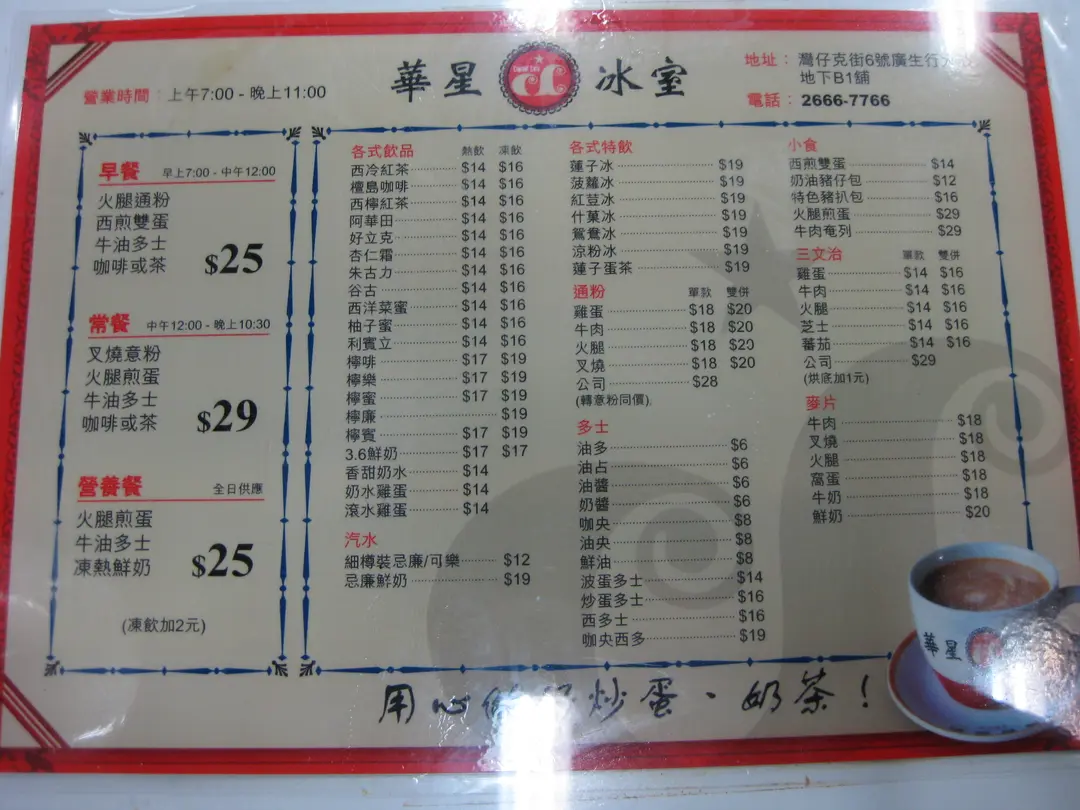 營業時間：上午7:00 - 晚上11:00
華星 冰室
地址：灣仔克街6號廣生行
地下B1舖
電話：2666-7766
早餐 早上7:00 - 中午12:00
火腿通粉
西煎雙蛋
牛油多士
咖啡或茶 $25
常餐 中午12:00 - 晚上10:30
叉燒意粉
火腿煎蛋
牛油多士
咖啡或茶 $29
營養餐 全日供應
火腿煎蛋
牛油多士
凍熱鮮奶 $25
(凍飲加2元)
各式飲品 熱飲 凍飲
西冷紅茶 $14 $16
檀島咖啡 $14 $16
西檸紅茶 $14 $16
阿華田 $14 $16
好立克 $14 $16
杏仁霜 $14 $16
朱古力 $14 $16
谷古 $14 $16
西洋菜蜜 $14 $16
柚子蜜 $14 $16
利賓立 $14 $16
檸啡 $17 $19
檸樂 $17 $19
檸蜜 $17 $19
檸廉 $19
檸賓 $17 $19
3.6鮮奶 $17 $17
香甜奶水 $14
奶水雞蛋 $14
滾水雞蛋 $14
汽水
細樽裝忌廉/可樂 $12
忌廉鮮奶 $19
各式特飲
蓮子冰 $19
菠蘿冰 $19
紅荳冰 $19
什菓冰 $19
鴛鴦冰 $19
涼粉冰 $19
蓮子蛋茶 $19
通粉 單款 雙併
雞蛋 $18 $20
牛肉 $18 $20
火腿 $18 $20
叉燒 $18 $20
公司 $28
(轉意粉同價)
多士
油多 $6
油占 $6
油醬 $6
奶醬 $6
咖央 $8
油央 $8
鮮油 $8
波蛋多士 $14
炒蛋多士 $16
西多士 $16
咖央西多 $19
小食
西煎雙蛋 $14
奶油豬仔包 $12
特色豬扒包 $16
火腿煎蛋 $29
牛肉奄列 $29
三文治 單款 雙併
雞蛋 $14 $16
牛肉 $14 $16
火腿 $14 $16
芝士 $14 $16
蕃茄 $14 $16
公司 $29
(烘底加1元)
麥片
牛肉 $18
叉燒 $18
火腿 $18
窩蛋 $18
牛奶 $18
鮮奶 $20
華星
用心 炒蛋、奶茶！